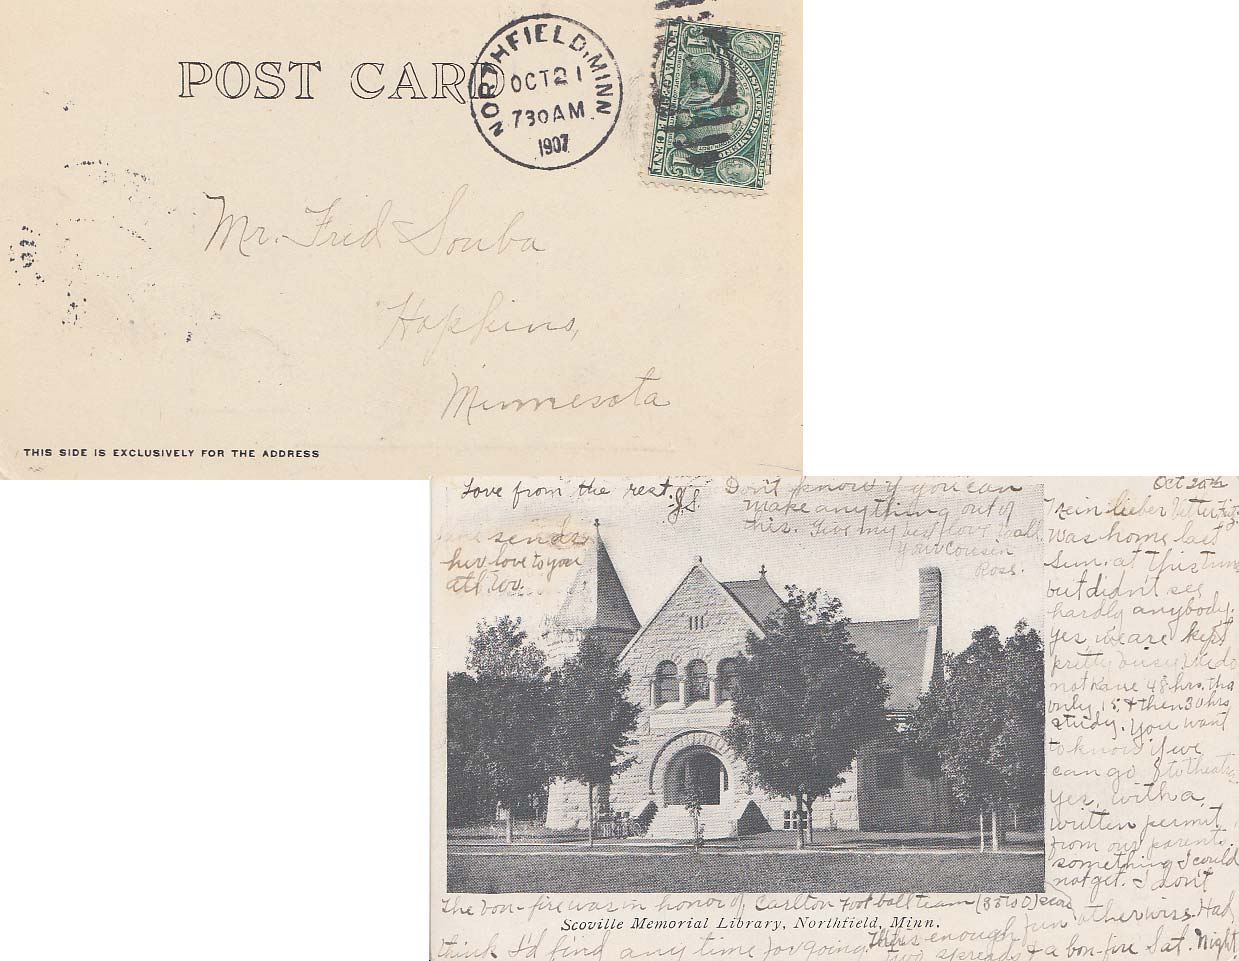 POST CARD
NORTHFIELD, MINN
OCT 21
730 AM
1907
Mr. Fred Souba
Hopkins,
Minnesota
THIS SIDE IS EXCLUSIVELY FOR THE ADDRESS
Love from the rest. J.S.
sends
her love to you
all too.
Don't know if you can
make anything out of
this. Give my best love to all
Your cousin
Rose.
Oct 20th
Mein lieber Vetter
Was home last
Sun. at this time
but didn't see
hardly anybody.
Yes, we are kept
pretty busy. We do
not have 48 hrs. tho
only 18, & then 30 hrs
study. You want
to know if we
can go to theatre
Yes, with a
written permit
from our parents.
something I could
not get. I don't
think I'd find any time for going.
There's enough fun otherwise. Had
two spreads & a bon-fire Sat. Night
The bon-fire was in honor of Carlton Foot ball team (35 to 0) score
Scoville Memorial Library, Northfield, Minn.